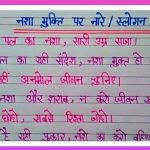 नशा मुक्ति पर नारे / स्लोगन
पल का नशा, सारी उम्र सजा।
का यही संदेश, नशा मुक्त हो
नहीं अनमोल जीवन चुनिए।
नशा और शराब, न करे जीवन
छोड़ो, सबसे रिश्ता जोड़ो।
रही पुकार, नशे का करो बहि